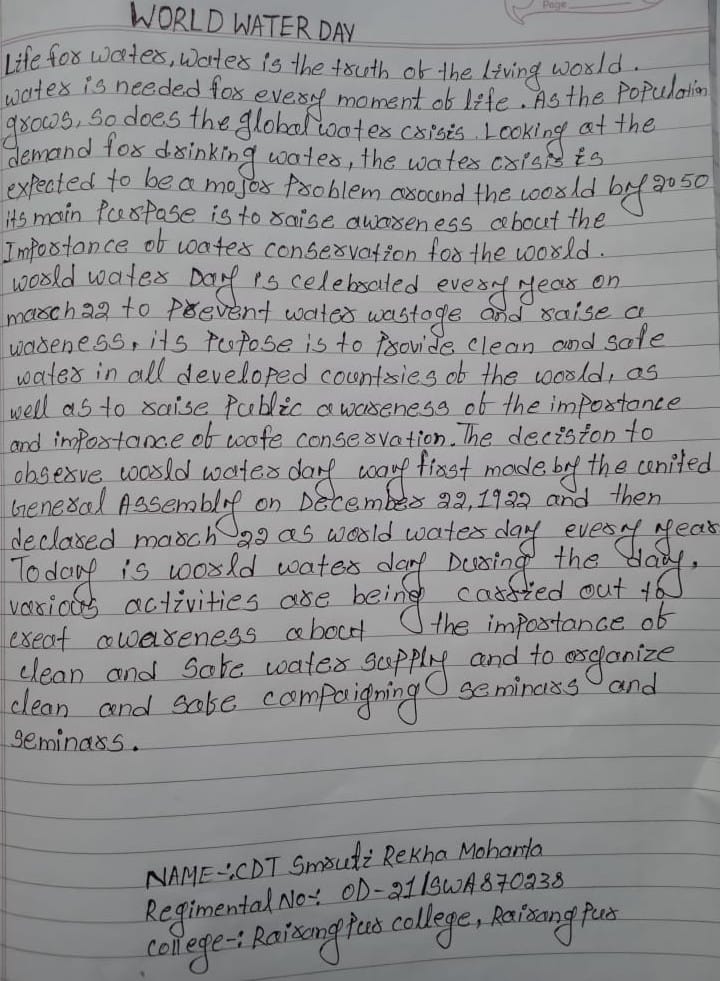 Page
WORLD WATER DAY
Life for water, water is the truth of the living world.
water is needed for every moment of life. As the Population
grows, so does the global water crisis. Looking at the
demand for drinking water, the water crisis is
expected to be a major Problem around the world by 2050
its main Purpase is to raise awareness about the
Importance of water conservation for the world.
world water Day is celebrated every year on
march 22 to Prevent water wastage and raise a
wareness, its Pupose is to Provide clean and safe
water in all developed countries of the world, as
well as to raise Public awareness of the importance
and importance of wafe conservation. The decision to
observe world water day way first made by the united
General Assembly on December 22, 1922 and then
declared march 22 as world water day every year
Today is world water day During the day,
various activities are being carried out to
creat awareness about the importance of
clean and Safe water supply and to organize
clean and safe campaigning seminars and
seminars.
NAME-:CDT Smruti Rekha Mohanta
Regimental No-: OD-21/SWA870238
college-: Rairangpur college, Rairangpur